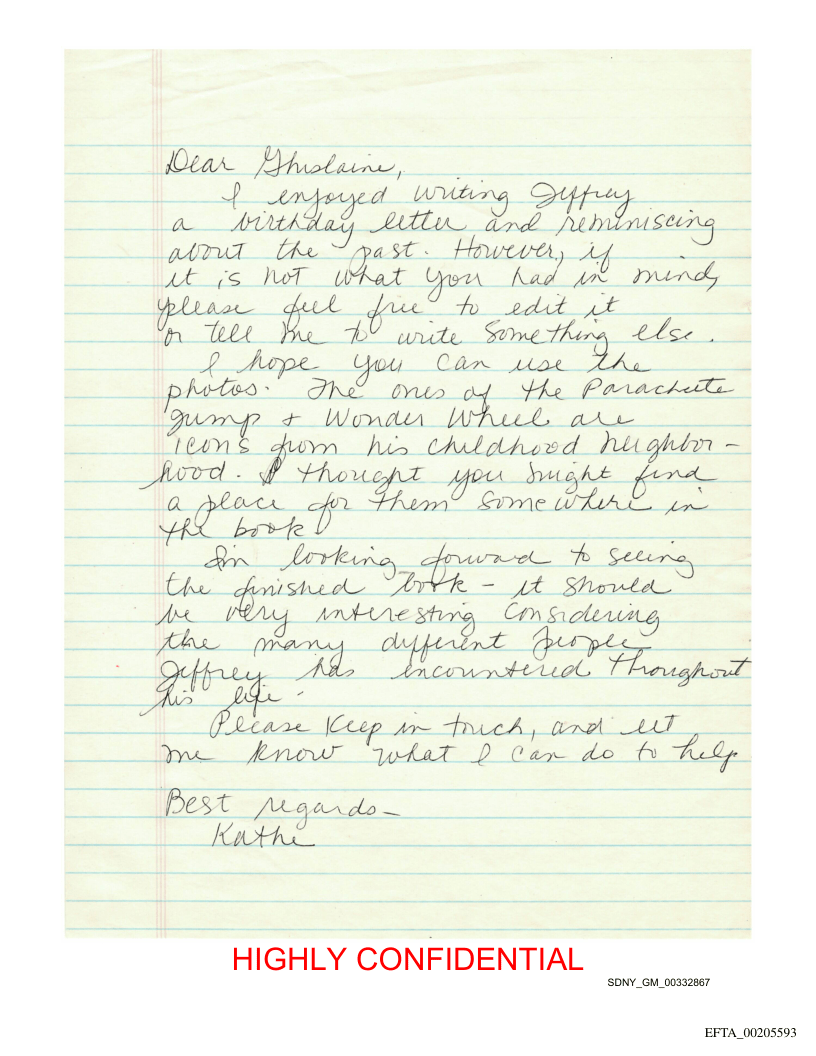 Dear Ghislaine,
I enjoyed writing Jeffrey
a birthday letter and reminiscing
about the past. However, if
it is not what you had in mind,
please feel free to edit it
or tell me to write something else.
I hope you can use the
photos. The ones of the Parachute
Jump + Wonder Wheel are
icons from his childhood neighbor-
hood. I thought you might find
a place for them somewhere in
the book.
I'm looking forward to seeing
the finished book - it should
be very interesting considering
the many different people
Jeffrey has encountered throughout
his life.
Please keep in touch, and let
me know what I can do to help
Best regards-
Kathe
HIGHLY CONFIDENTIAL
SDNY_GM_00332867
EFTA_00205593